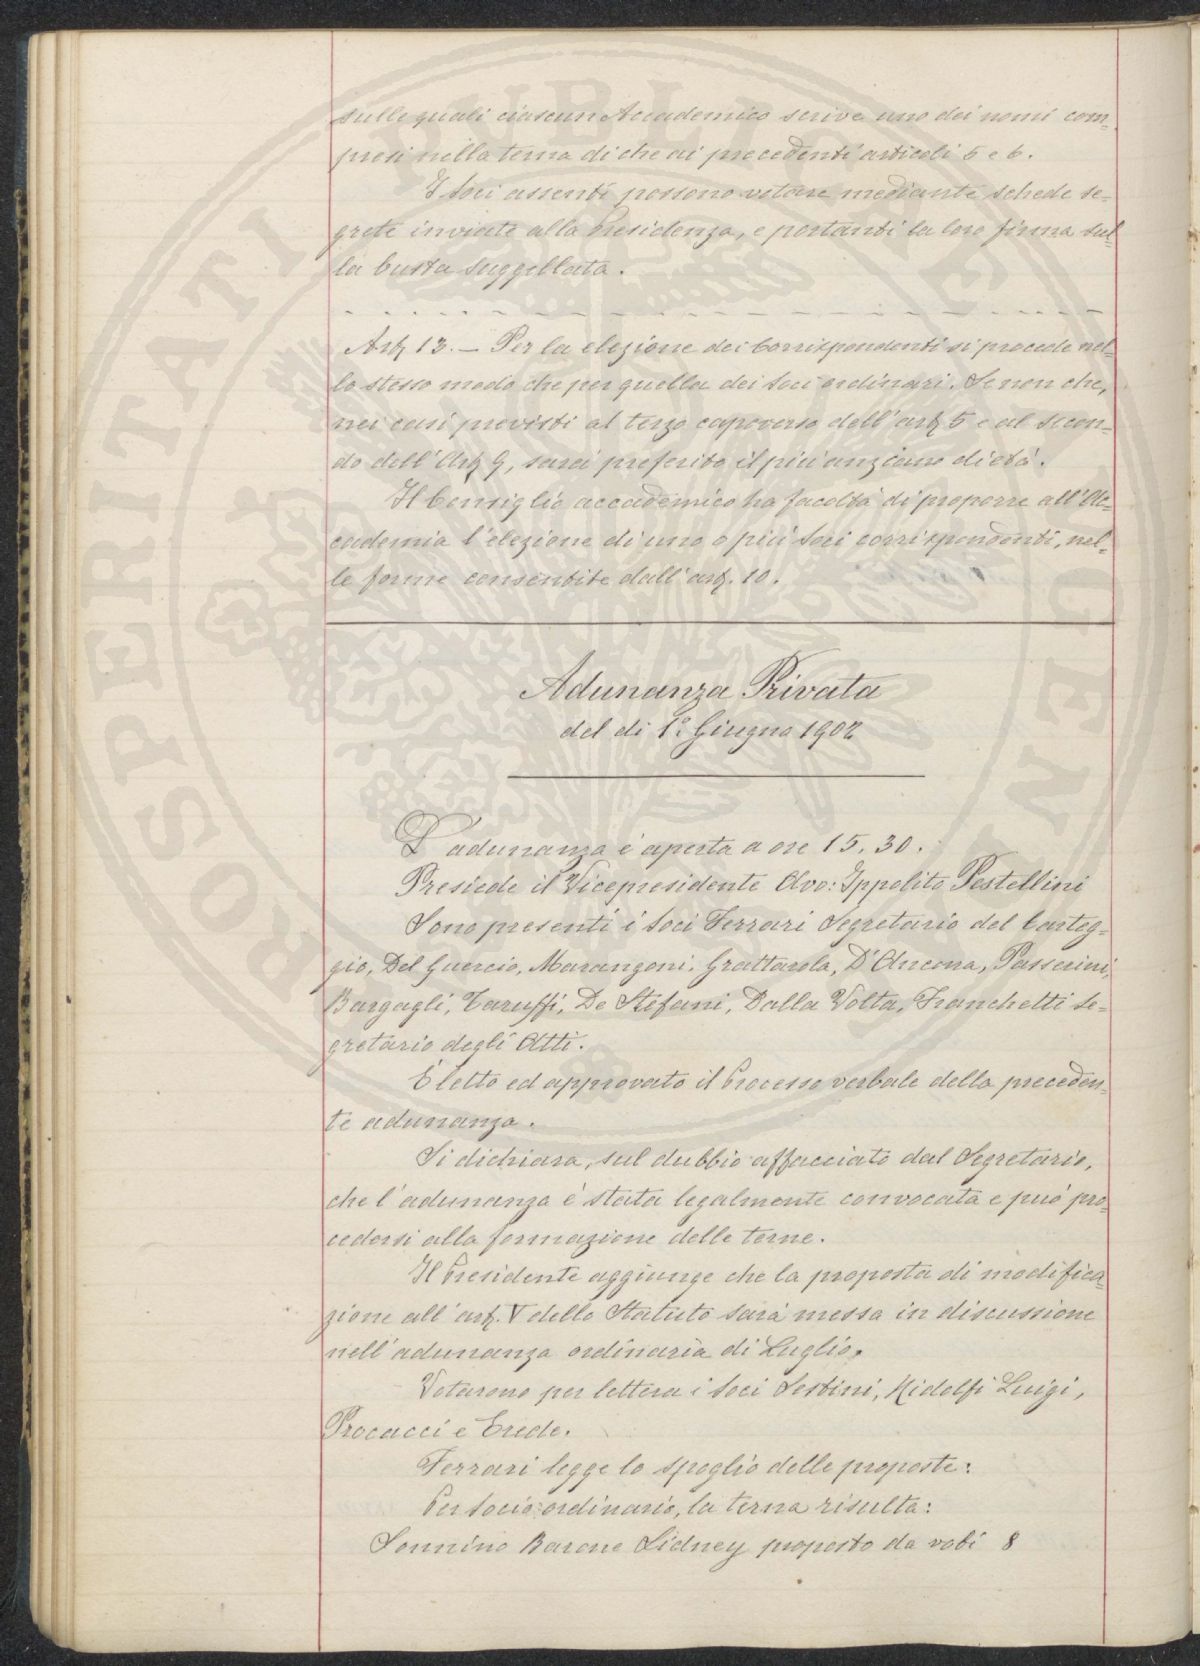 sulle quali ciascun Accademico scrive uno dei nomi com-
presi nella terna di che ai precedenti articoli 5 e 6.
I Soci assenti possono votare mediante schede se-
grete inviate alla Presidenza, e portanti la loro firma sul-
la busta suggellata.
Art 13. — Per la elezione dei Corrispondenti si procede nel-
lo stesso modo che per quella dei Soci ordinari. Se non che,
nei casi previsti al terzo capoverso dell'art 5 e al secon-
do dell'Art 9, sarà preferito il più anziano di età.
Il Consiglio accademico ha facoltà di proporre all'Ac-
cademia l'elezione di uno o più Soci corrispondenti, nel-
le forme consentite dall'art. 10.
Adunanza Privata
del dì 1° Giugno 1902
L'adunanza è aperta a ore 15,30.
Presiede il Vicepresidente Avv: Ippolito Pestellini
Sono presenti i Soci Ferrari Segretario del Carteg-
gio, Del Guercio, Marangoni, Grattarola, D'Ancona, Passerini,
Bargagli, Taruffi, De Stefani, Dalla Volta, Franchetti Se-
gretario degli Atti.
È letto ed approvato il Processo verbale della preceden-
te adunanza.
Si dichiara, sul dubbio affacciato dal Segretario,
che l'adunanza è stata legalmente convocata e può pro-
cedersi alla formazione delle terne.
Il Presidente aggiunge che la proposta di modifica-
zione all'art. V dello Statuto sarà messa in discussione
nell'adunanza ordinaria di Luglio.
Votarono per lettera i Soci Sestini, Ridolfi Luigi,
Procacci e Erede.
Ferrari legge lo spoglio delle proposte:
Per Socio ordinario, la terna risulta:
Sonnino Barone Sidney proposto da voti 8
PROSPERITATI PUBLICAE AUGENDAE